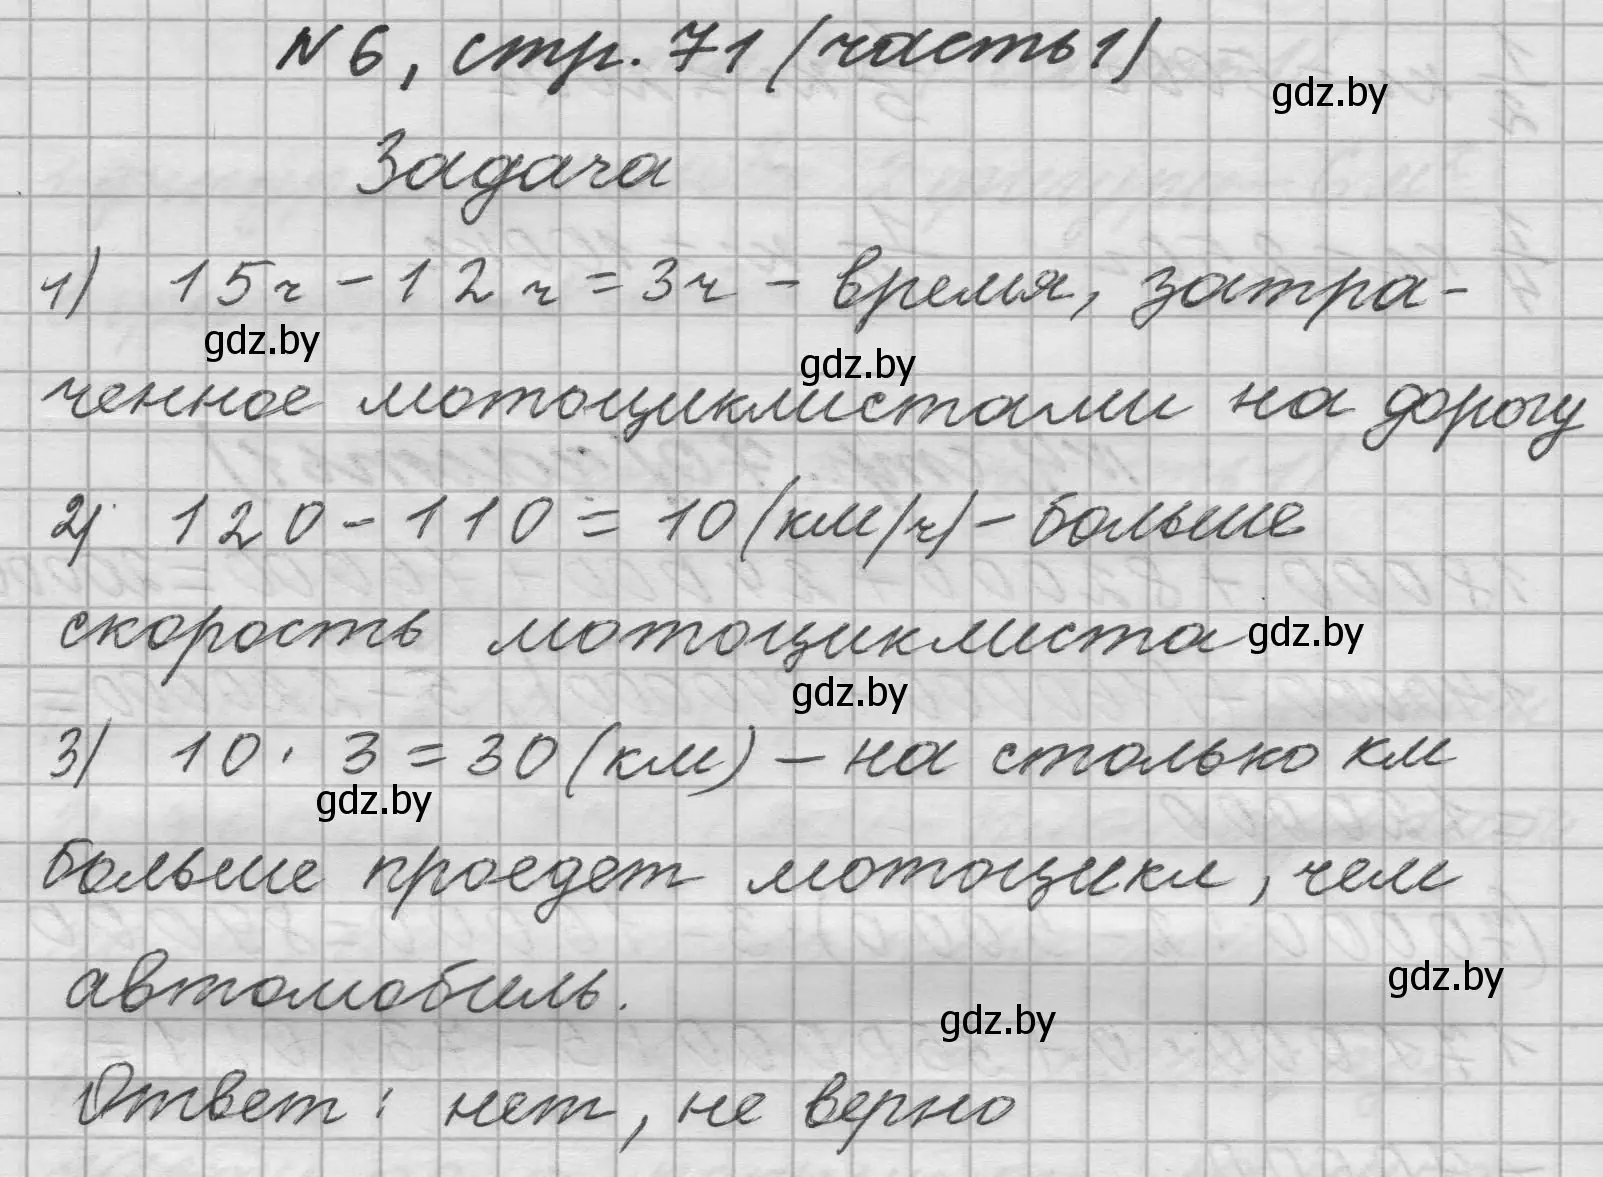 № 6, стр. 71 (часть 1)
gdz.by
Задача
1) 15ч - 12ч = 3ч - время, затра-
gdz.by
gdz.by
ченное мотоциклистами на дорогу
2) 120 - 110 = 10 (км/ч) - больше
скорость мотоциклиста
gdz.by
gdz.by
3) 10 · 3 = 30 (км) - на столько км
gdz.by
больше проедет мотоцикл, чем
автомобиль.
gdz.by
gdz.by
Ответ: нет, не верно